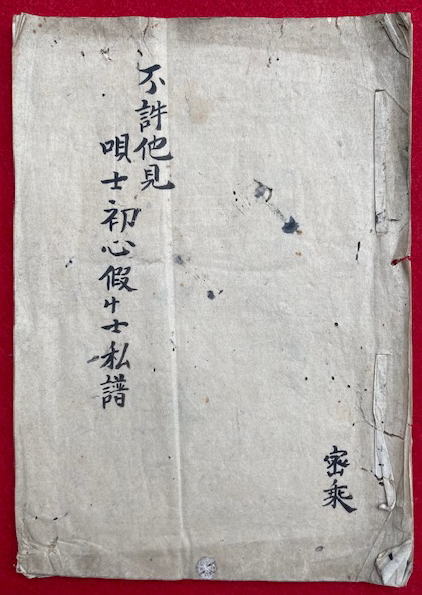 不許他見
唄士初心假忄士私譜
宻乗